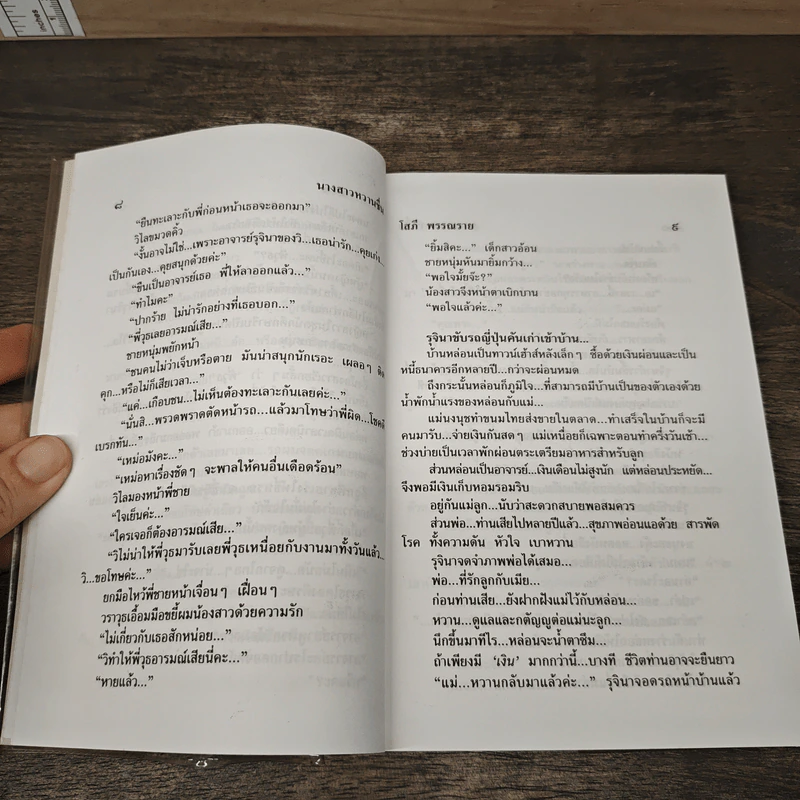 inches
๘
นางสาวหวานชื่น
“ยืนทะเลาะกับพี่ก่อนหน้าเธอจะออกมา”
วิไลขมวดคิ้ว
“งั้นอาจไม่ใช่...เพราะอาจารย์รุจินาของวิ...เธอน่ารัก...คุยเก่ง...
เป็นกันเอง...คุยสนุกด้วยค่ะ”
“ขืนเป็นอาจารย์เธอ พี่ให้ลาออกแล้ว...”
“ทำไมคะ”
“ปากร้าย ไม่น่ารักอย่างที่เธอบอก...”
“พี่วุธเลยอารมณ์เสีย...”
ชายหนุ่มพยักหน้า
“ชนคนไม่ว่าเจ็บหรือตาย มันน่าสนุกนักเรอะ เผลอๆ ติด
คุก...หรือไม่ก็เสียเวลา...”
“แค่...เกือบชน...ไม่เห็นต้องทะเลาะกันเลยค่ะ...”
“นั่นสิ...พรวดพราดตัดหน้ารถ...แล้วมาโทษว่าพี่ผิด...โชคดี
เบรกทัน...”
“เหม่อมังคะ...”
“เหม่อหาเรื่องชัดๆ จะพาลให้คนอื่นเดือดร้อน”
วิไลมองหน้าพี่ชาย
“ใจเย็นค่ะ...”
“ใครเจอก็ต้องอารมณ์เสีย...”
“วิไม่น่าให้พี่วุธมารับเลยพี่วุธเหนื่อยกับงานมาทั้งวันแล้ว..
วิ...ขอโทษค่ะ...”
ยกมือไหว้พี่ชายหน้าเจื่อนๆ เฝื่อนๆ
วราวุธเอื้อมมือขยี้ผมน้องสาวด้วยความรัก
“ไม่เกี่ยวกับเธอสักหน่อย...”
“วิทำให้พี่วุธอารมณ์เสียนี่คะ...”
“หายแล้ว...”
โสภี พรรณราย
๙
“ยิ้มสิคะ...” เด็กสาวอ้อน
ชายหนุ่มหันมายิ้มกว้าง...
“พอใจมั้ยจ๊ะ?”
น้องสาวจึงหน้าตาเบิกบาน
“พอใจแล้วค่ะ...”
รุจินาขับรถญี่ปุ่นคันเก่าเข้าบ้าน...
บ้านหล่อนเป็นทาวน์เฮ้าส์หลังเล็กๆ ซื้อด้วยเงินผ่อนและเป็น
หนี้ธนาคารอีกหลายปี...กว่าจะผ่อนหมด
ถึงกระนั้นหล่อนก็ภูมิใจ...ที่สามารถมีบ้านเป็นของตัวเองด้วย
น้ำพักน้ำแรงของหล่อนกับแม่...
แม่นงนุชทำขนมไทยส่งขายในตลาด...ทำเสร็จในบ้านก็จะมี
คนมารับ...จ่ายเงินกันสดๆ แม่เหนื่อยก็เฉพาะตอนทำครึ่งวันเช้า...
ช่วงบ่ายเป็นเวลาพักผ่อนตระเตรียมอาหารสำหรับลูก
ส่วนหล่อนเป็นอาจารย์...เงินเดือนไม่สูงนัก แต่หล่อนประหยัด...
จึงพอมีเงินเก็บหอมรอมริบ
อยู่กันแม่ลูก...นับว่าสะดวกสบายพอสมควร
ส่วนพ่อ...ท่านเสียไปหลายปีแล้ว...สุขภาพอ่อนแอด้วย สารพัด
โรค ทั้งความดัน หัวใจ เบาหวาน
รุจินาจดจำภาพพ่อได้เสมอ...
พ่อ...ที่รักลูกกับเมีย...
ก่อนท่านเสีย...ยังฝากฝังแม่ไว้กับหล่อน...
หวาน...ดูแลและกตัญญูต่อแม่นะลูก...
นึกขึ้นมาทีไร...หล่อนจะน้ำตาซึม...
ถ้าเพียงมี ‘เงิน’ มากกว่านี้...บางที ชีวิตท่านอาจจะยืนยาว
“แม่...หวานกลับมาแล้วค่ะ...” รุจินาจอดรถหน้าบ้านแล้ว